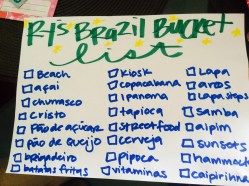 RJ's BRAZIL BUCKET
list
BEACH
açaí
churrasco
cristo
pão de açúcar
pão de queijo
brigadeiro
batatas fritas
Kiosk
copacabana
ipanema
tapioca
street food
cerveja
pipoca
vitaminas
Lapa
arcos
Lapa steps
samba
aipim
sunsets
hammock
caipirinha